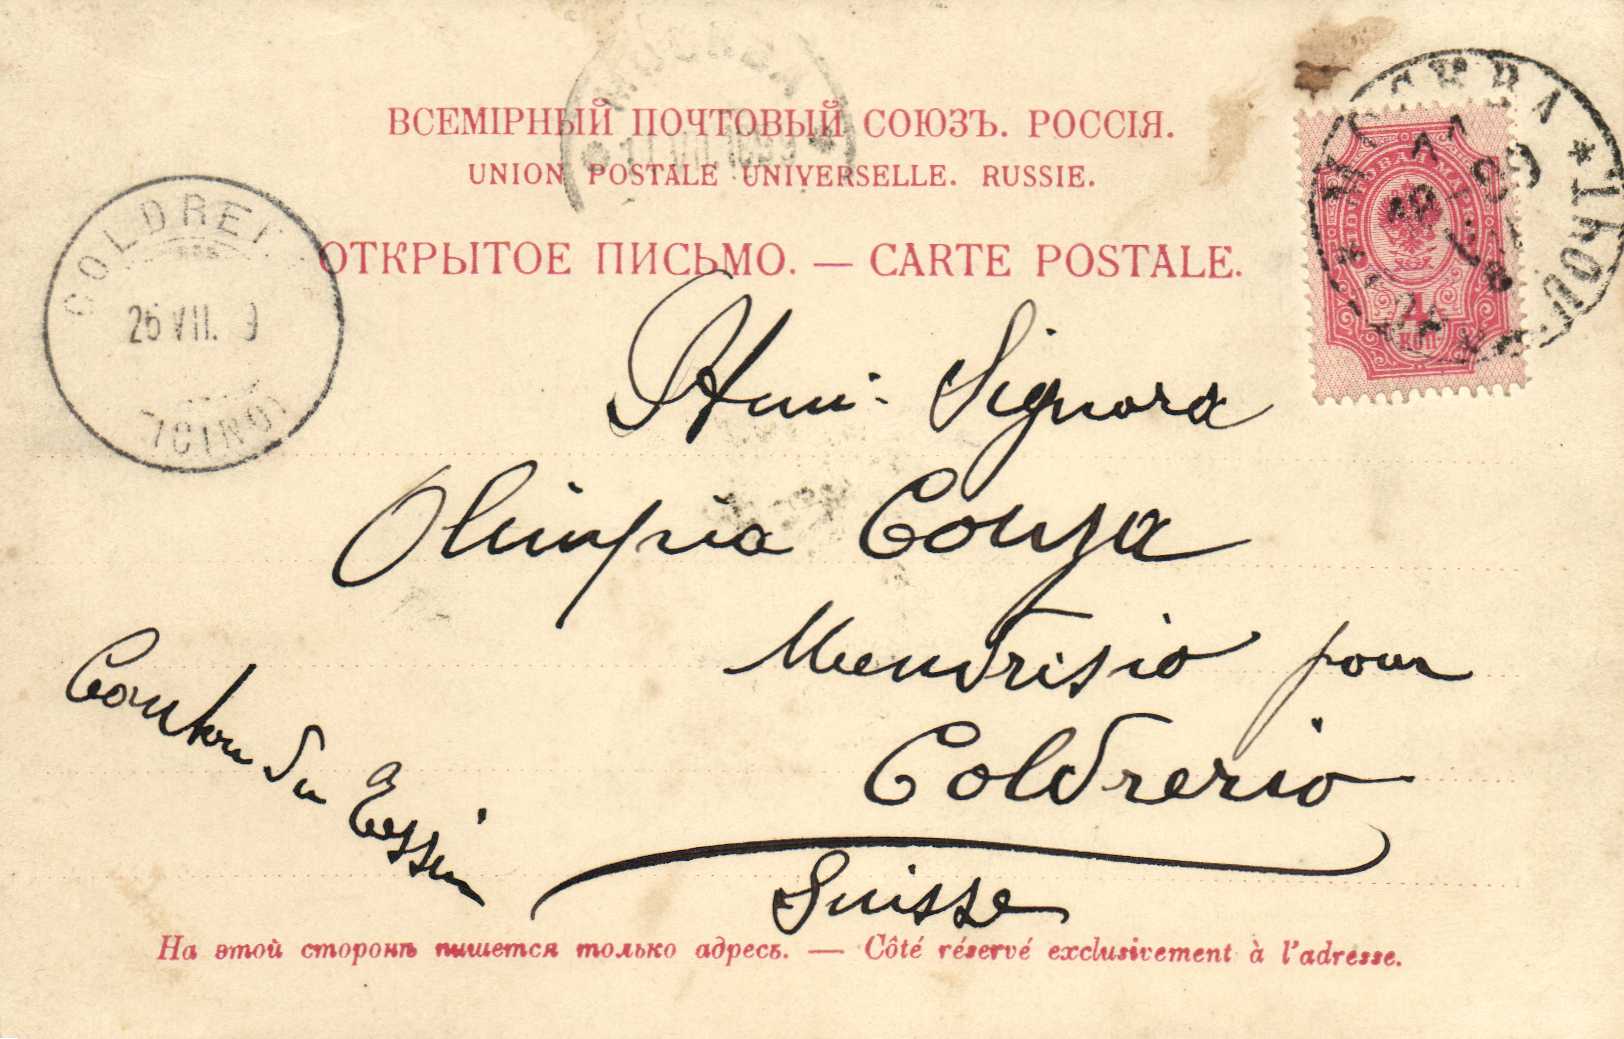 ВСЕМІРНЫЙ ПОЧТОВЫЙ СОЮЗЪ. РОССІЯ.
UNION POSTALE UNIVERSELLE. RUSSIE.
ОТКРЫТОЕ ПИСЬМО. — CARTE POSTALE.
МОСКВА
COLDRE
26 VII. 9
TICINO
МОСКВА
ПОЧТОВАЯ МАРКА
4
КОП
Signora
Olimpia
Mendrisio pour
Coldrerio
Suisse
Canton du Tessin
На этой сторонѣ пишется только адресъ. — Côté réservé exclusivement à l'adresse.